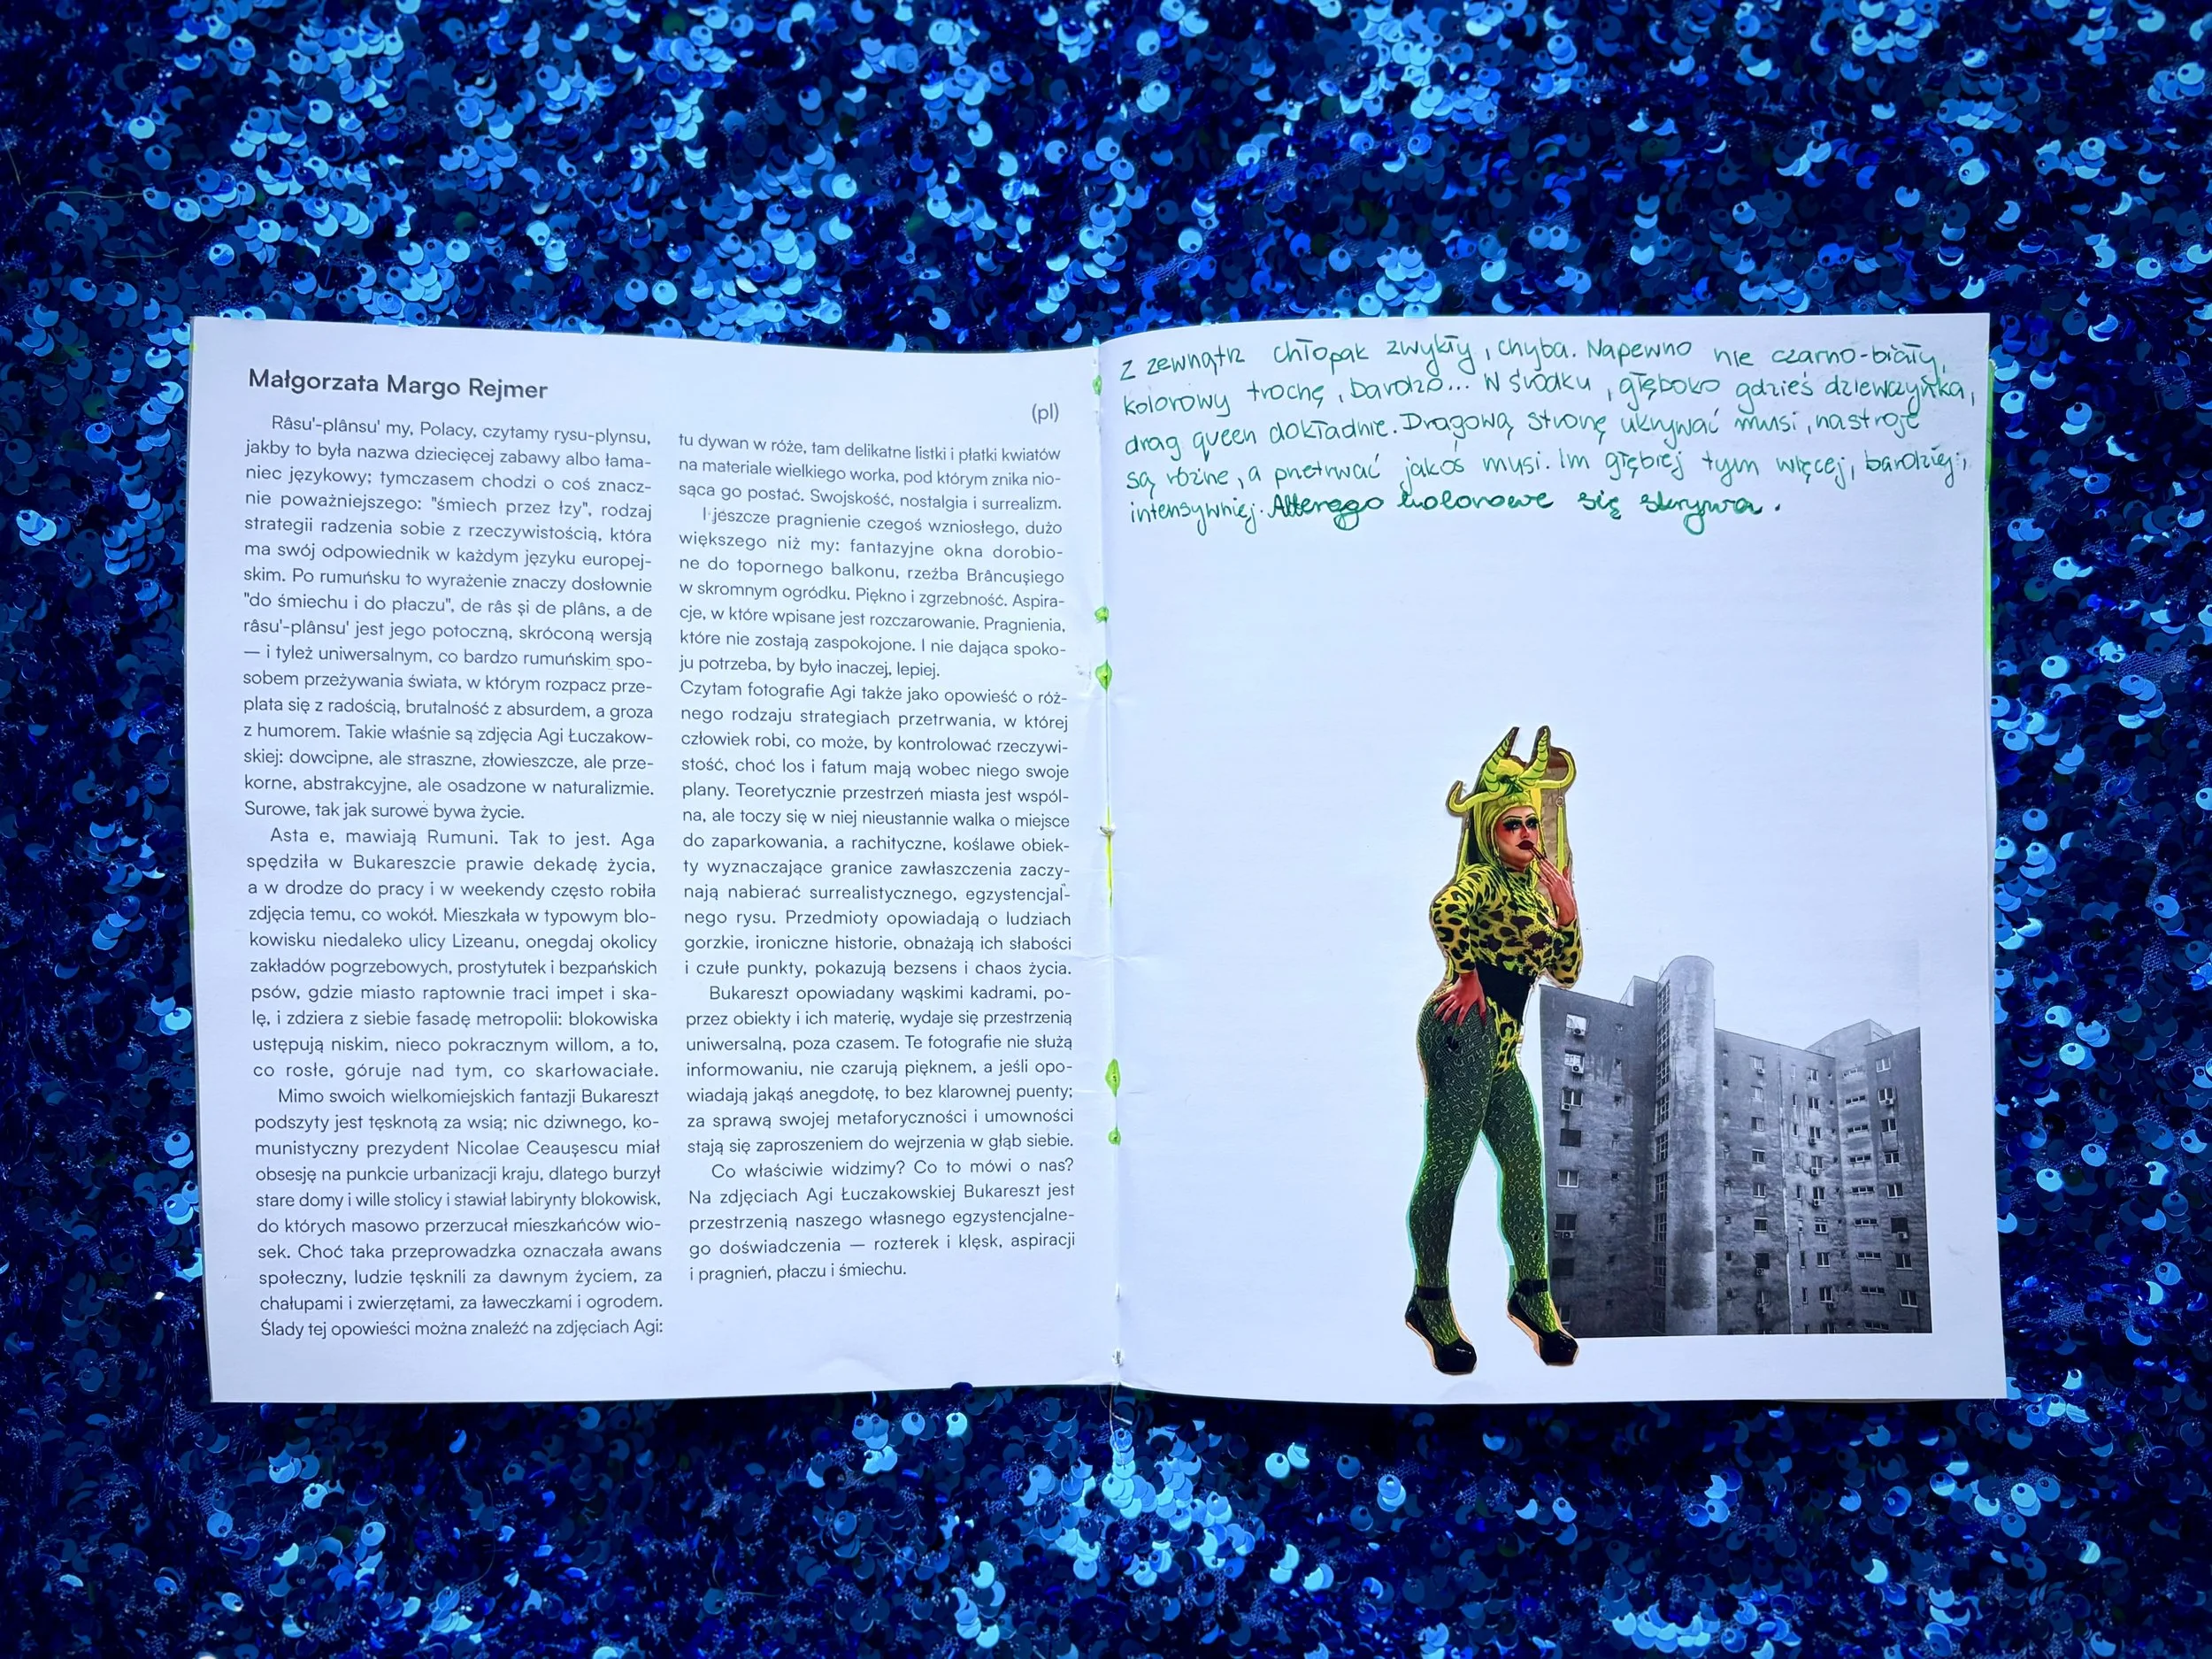 Małgorzata Margo Rejmer
(pl)
Râsu'-plânsu' my, Polacy, czytamy rysu-plynsu,
jakby to była nazwa dziecięcej zabawy albo łama-
niec językowy; tymczasem chodzi o coś znacz-
nie poważniejszego: "śmiech przez łzy", rodzaj
strategii radzenia sobie z rzeczywistością, która
ma swój odpowiednik w każdym języku europej-
skim. Po rumuńsku to wyrażenie znaczy dosłownie
"do śmiechu i do płaczu", de râs și de plâns, a de
râsu'-plânsu' jest jego potoczną, skróconą wersją
— i tyleż uniwersalnym, co bardzo rumuńskim spo-
sobem przeżywania świata, w którym rozpacz prze-
plata się z radością, brutalność z absurdem, a groza
z humorem. Takie właśnie są zdjęcia Agi Łuczakow-
skiej: dowcipne, ale straszne, złowieszcze, ale prze-
korne, abstrakcyjne, ale osadzone w naturalizmie.
Surowe, tak jak surowe bywa życie.
Asta e, mawiają Rumuni. Tak to jest. Aga
spędziła w Bukareszcie prawie dekadę życia,
a w drodze do pracy i w weekendy często robiła
zdjęcia temu, co wokół. Mieszkała w typowym blo-
kowisku niedaleko ulicy Lizeanu, onegdaj okolicy
zakładów pogrzebowych, prostytutek i bezpańskich
psów, gdzie miasto raptownie traci impet i ska-
lę, i zdziera z siebie fasadę metropolii: blokowiska
ustępują niskim, nieco pokracznym willom, a to,
co rosłe, góruje nad tym, co skarłowaciałe.
Mimo swoich wielkomiejskich fantazji Bukareszt
podszyty jest tęsknotą za wsią; nic dziwnego, ko-
munistyczny prezydent Nicolae Ceaușescu miał
obsesję na punkcie urbanizacji kraju, dlatego burzył
stare domy i wille stolicy i stawiał labirynty blokowisk,
do których masowo przerzucał mieszkańców wio-
sek. Choć taka przeprowadzka oznaczała awans
społeczny, ludzie tęsknili za dawnym życiem, za
chałupami i zwierzętami, za ławeczkami i ogrodem.
Ślady tej opowieści można znaleźć na zdjęciach Agi:
tu dywan w róże, tam delikatne listki i płatki kwiatów
na materiale wielkiego worka, pod którym znika nio-
sąca go postać. Swojskość, nostalgia i surrealizm.
I jeszcze pragnienie czegoś wzniosłego, dużo
większego niż my: fantazyjne okna dorobio-
ne do topornego balkonu, rzeźba Brâncușiego
w skromnym ogródku. Piękno i zgrzebność. Aspira-
cje, w które wpisane jest rozczarowanie. Pragnienia,
które nie zostają zaspokojone. I nie dająca spoko-
ju potrzeba, by było inaczej, lepiej.
Czytam fotografie Agi także jako opowieść o róż-
nego rodzaju strategiach przetrwania, w której
człowiek robi, co może, by kontrolować rzeczywi-
stość, choć los i fatum mają wobec niego swoje
plany. Teoretycznie przestrzeń miasta jest wspól-
na, ale toczy się w niej nieustannie walka o miejsce
do zaparkowania, a rachityczne, koślawe obiek-
ty wyznaczające granice zawłaszczenia zaczy-
nają nabierać surrealistycznego, egzystencjal-
nego rysu. Przedmioty opowiadają o ludziach
gorzkie, ironiczne historie, obnażają ich słabości
i czułe punkty, pokazują bezsens i chaos życia.
Bukareszt opowiadany wąskimi kadrami, po-
przez obiekty i ich materię, wydaje się przestrzenią
uniwersalną, poza czasem. Te fotografie nie służą
informowaniu, nie czarują pięknem, a jeśli opo-
wiadają jakąś anegdotę, to bez klarownej puenty;
za sprawą swojej metaforyczności i umowności
stają się zaproszeniem do wejrzenia w głąb siebie.
Co właściwie widzimy? Co to mówi o nas?
Na zdjęciach Agi Łuczakowskiej Bukareszt jest
przestrzenią naszego własnego egzystencjalne-
go doświadczenia — rozterek i klęsk, aspiracji
i pragnień, płaczu i śmiechu.
Z zewnątrz chłopak zwykły, chyba. Napewno nie czarno-biały,
kolorowy trochę, bardzo... W środku, głęboko gdzieś dziewczynka,
drag queen dokładnie. Dragową stronę ukrywać musi, nastroje
są różne, a przetrwać jakoś musi. Im głębiej tym więcej, bardziej,
intensywniej. Alterego kolorowe się skrywa.